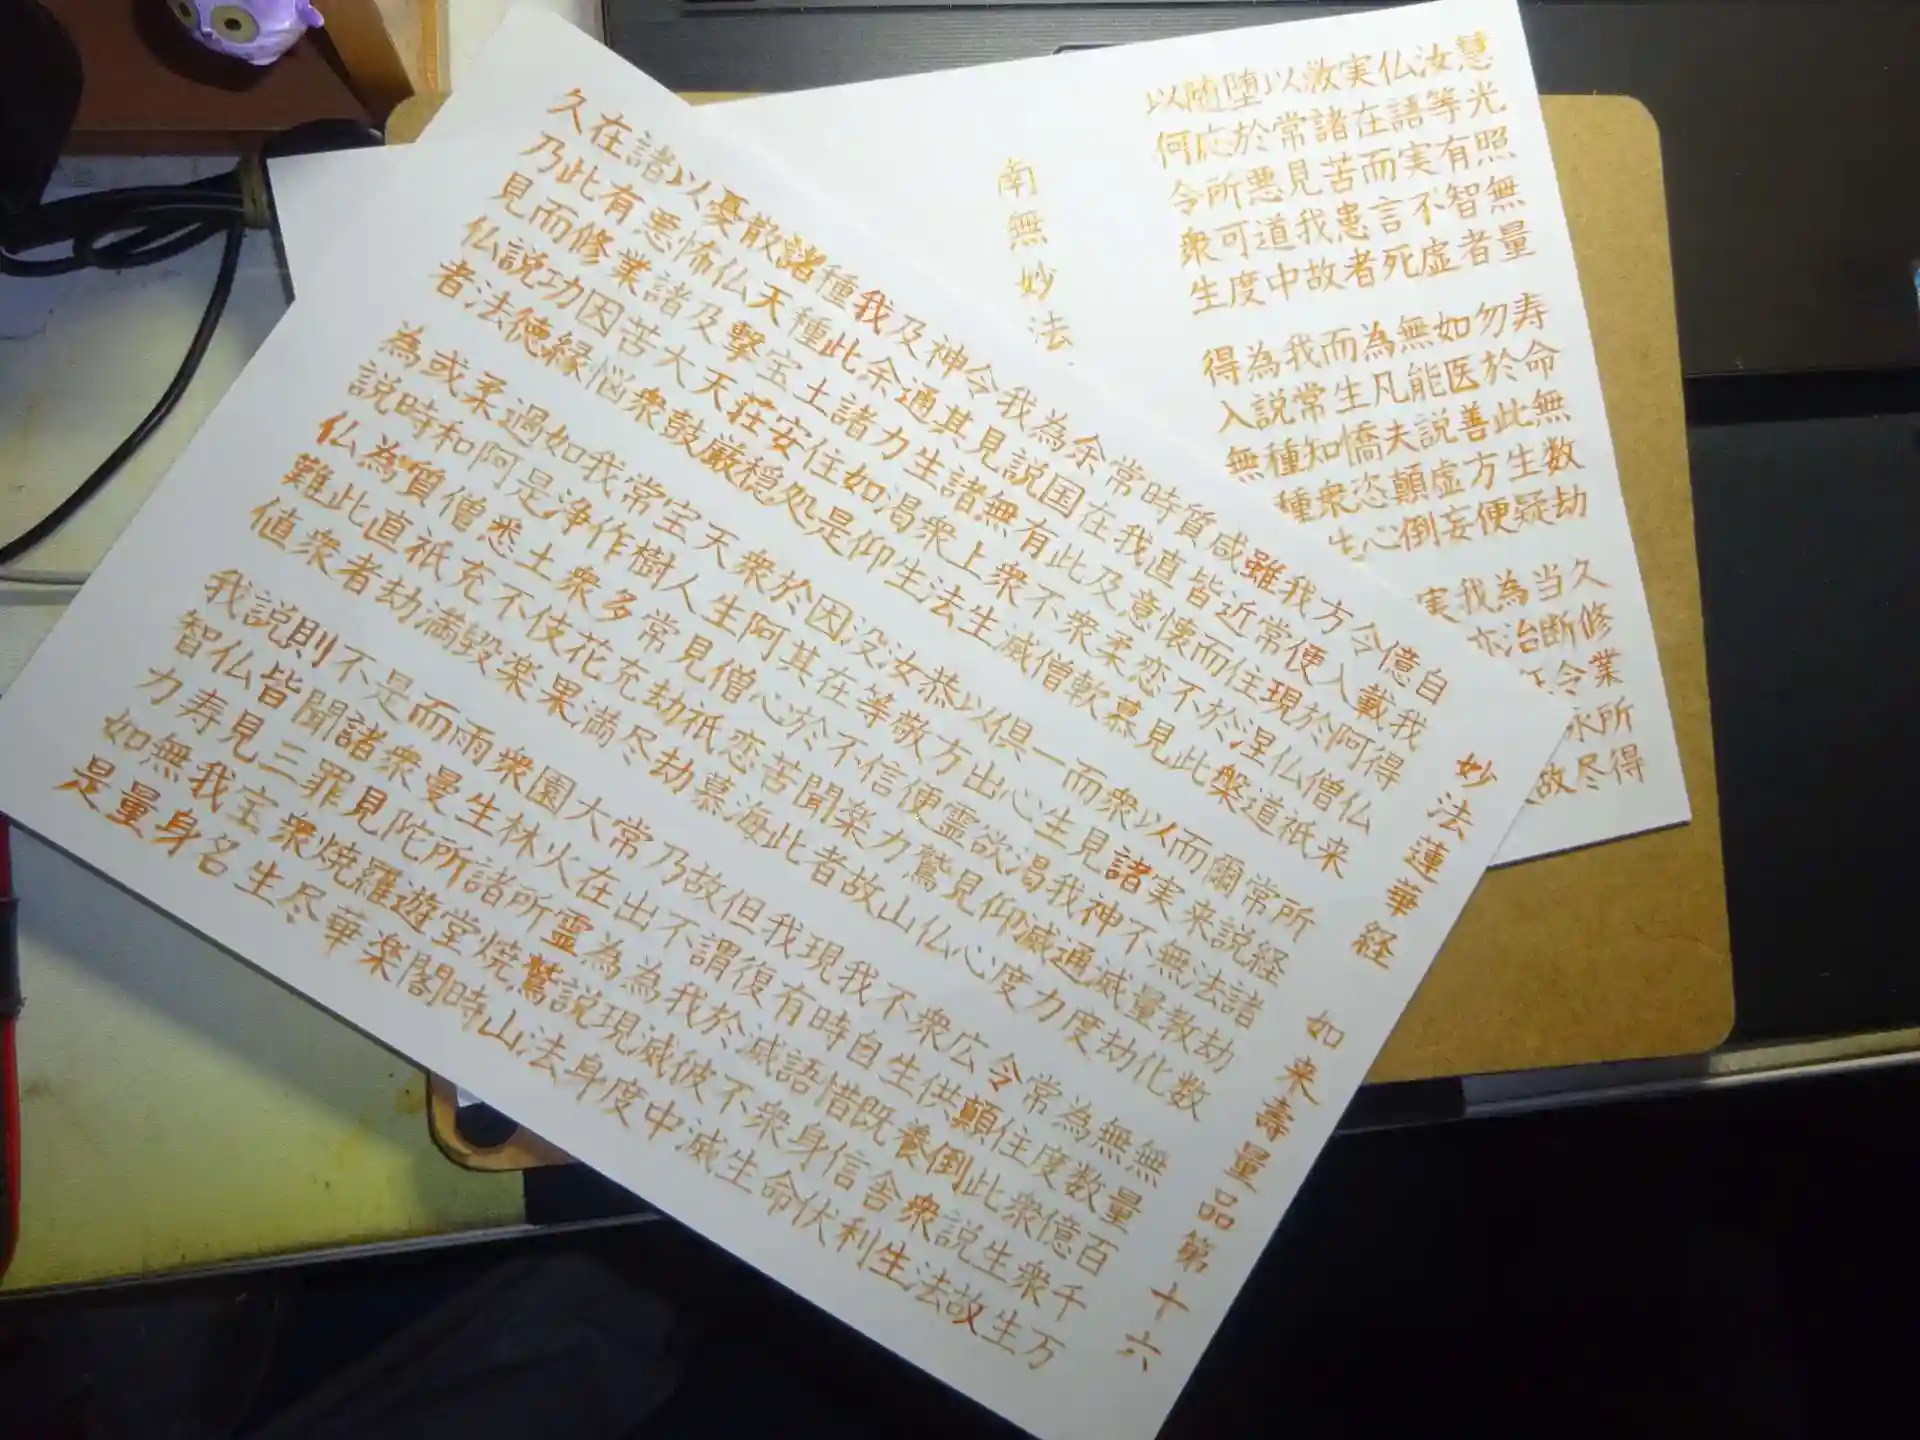 妙法蓮華経 如来壽量品第十六
自我得仏来 所経諸劫数 無量百千万
億載阿僧祇 常説法教化 無数億衆生
令入於仏道 爾来無量劫 為度衆生故
方便現涅槃 而実不滅度 常住此説法
我常住於此 以諸神通力 令顛倒衆生
雖近而不見 衆見我滅度 広供養舎利
咸皆懐恋慕 而生渇仰心 衆生既信伏
質直意柔軟 一心欲見仏 不自惜身命
時我及衆僧 倶出霊鷲山 我時語衆生
常在此不滅 以方便力故 現有滅不滅
余国有衆生 恭敬信楽者 我復於彼中
為説無上法 汝等不聞此 但謂我滅度
我見諸衆生 没在於苦海 故不為現身
令其生渇仰 因其心恋慕 乃出為説法
神通力如是 於阿僧祇劫 常在霊鷲山
及余諸住処 衆生見劫尽 大火所焼時
我此土安穏 天人常充満 園林諸堂閣
種種宝荘厳 宝樹多花果 衆生所遊楽
諸天撃天鼓 常作衆伎楽 雨曼陀羅華
散仏及大衆 我浄土不毀 而衆見焼尽
憂怖諸苦悩 如是悉充満 是諸罪衆生
以悪業因縁 過阿僧祇劫 不聞三宝名
諸有修功徳 柔和質直者 則皆見我身
在此而説法 或時為此衆 説仏寿無量
久乃見仏者 為説仏難値 我智力如是
慧光照無量 寿命無数劫 久修業所得
汝等有智者 勿於此生疑 当断令永尽
仏語実不虚 如医善方便 為治 故
実在而言死 無能説虚妄 我亦
救諸苦患者 為凡夫顛倒 実
以常見我故 而生憍恣心
堕於悪道中 我常知衆生
随応所可度 為説種種
以何令衆生 得入無
南無妙法